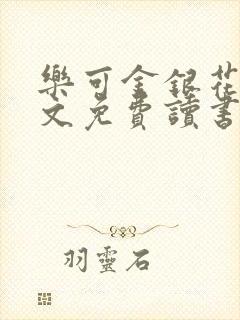 樂可金銀花
文免費讀書
羽靈石